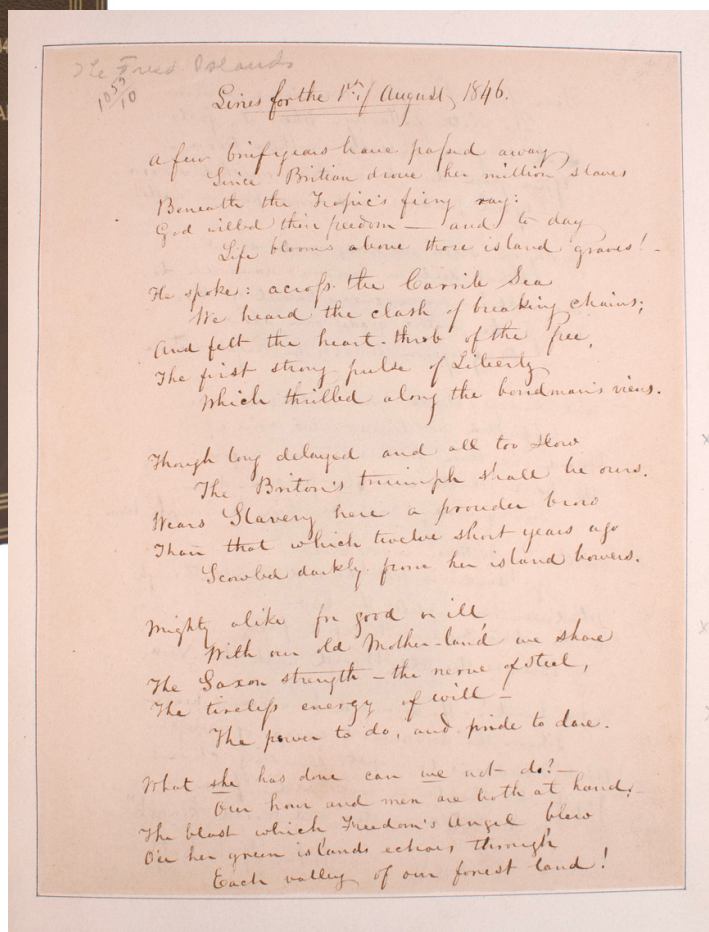 The Freed Islands
1053/10
Lines for the 1st. of August, 1846.
A few brief years have passed away
Since Britian drove her million slaves
Beneath the Tropic's fiery ray:
God willed their freedom — and to day
Life blooms above those island graves! -
He spoke: across the Carrib Sea
We heard the clash of breaking chains;
And felt the heart-throb of the free,
The first strong pulse of Liberty
Which thrilled along the bondman's viens.
Though long delayed and all too slow
The Briton's triumph shall be ours.
Wears Slavery here a prouder brow
Than that which twelve short years ago
Scowled darkly from her island bowers.
Mighty alike for good or ill
With our old Mother-land we share
The Saxon strength — the nerve of steel,
The tireless energy of will —
The power to do, and pride to dare.
What she has done can we not do? —
Our hour and men are both at hand;
The blast which Freedom's Angel blew
O'er her green islands echoes through
Each valley of our forest land!